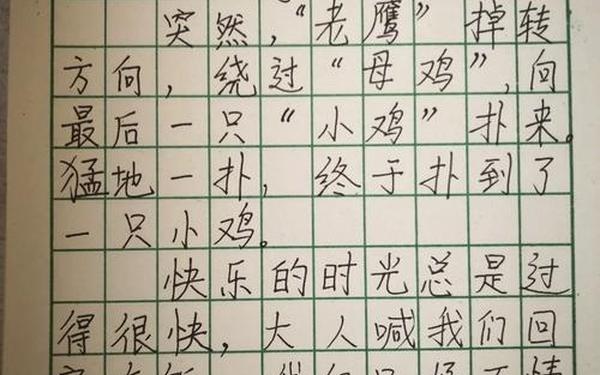 突然，“老鹰”掉转
方向，绕过“母鸡”，向
最后一只“小鸡”扑来。
猛地一扑，终于扑到了
一只小鸡。
快乐的时光总是过
得很快，大人喊我们回